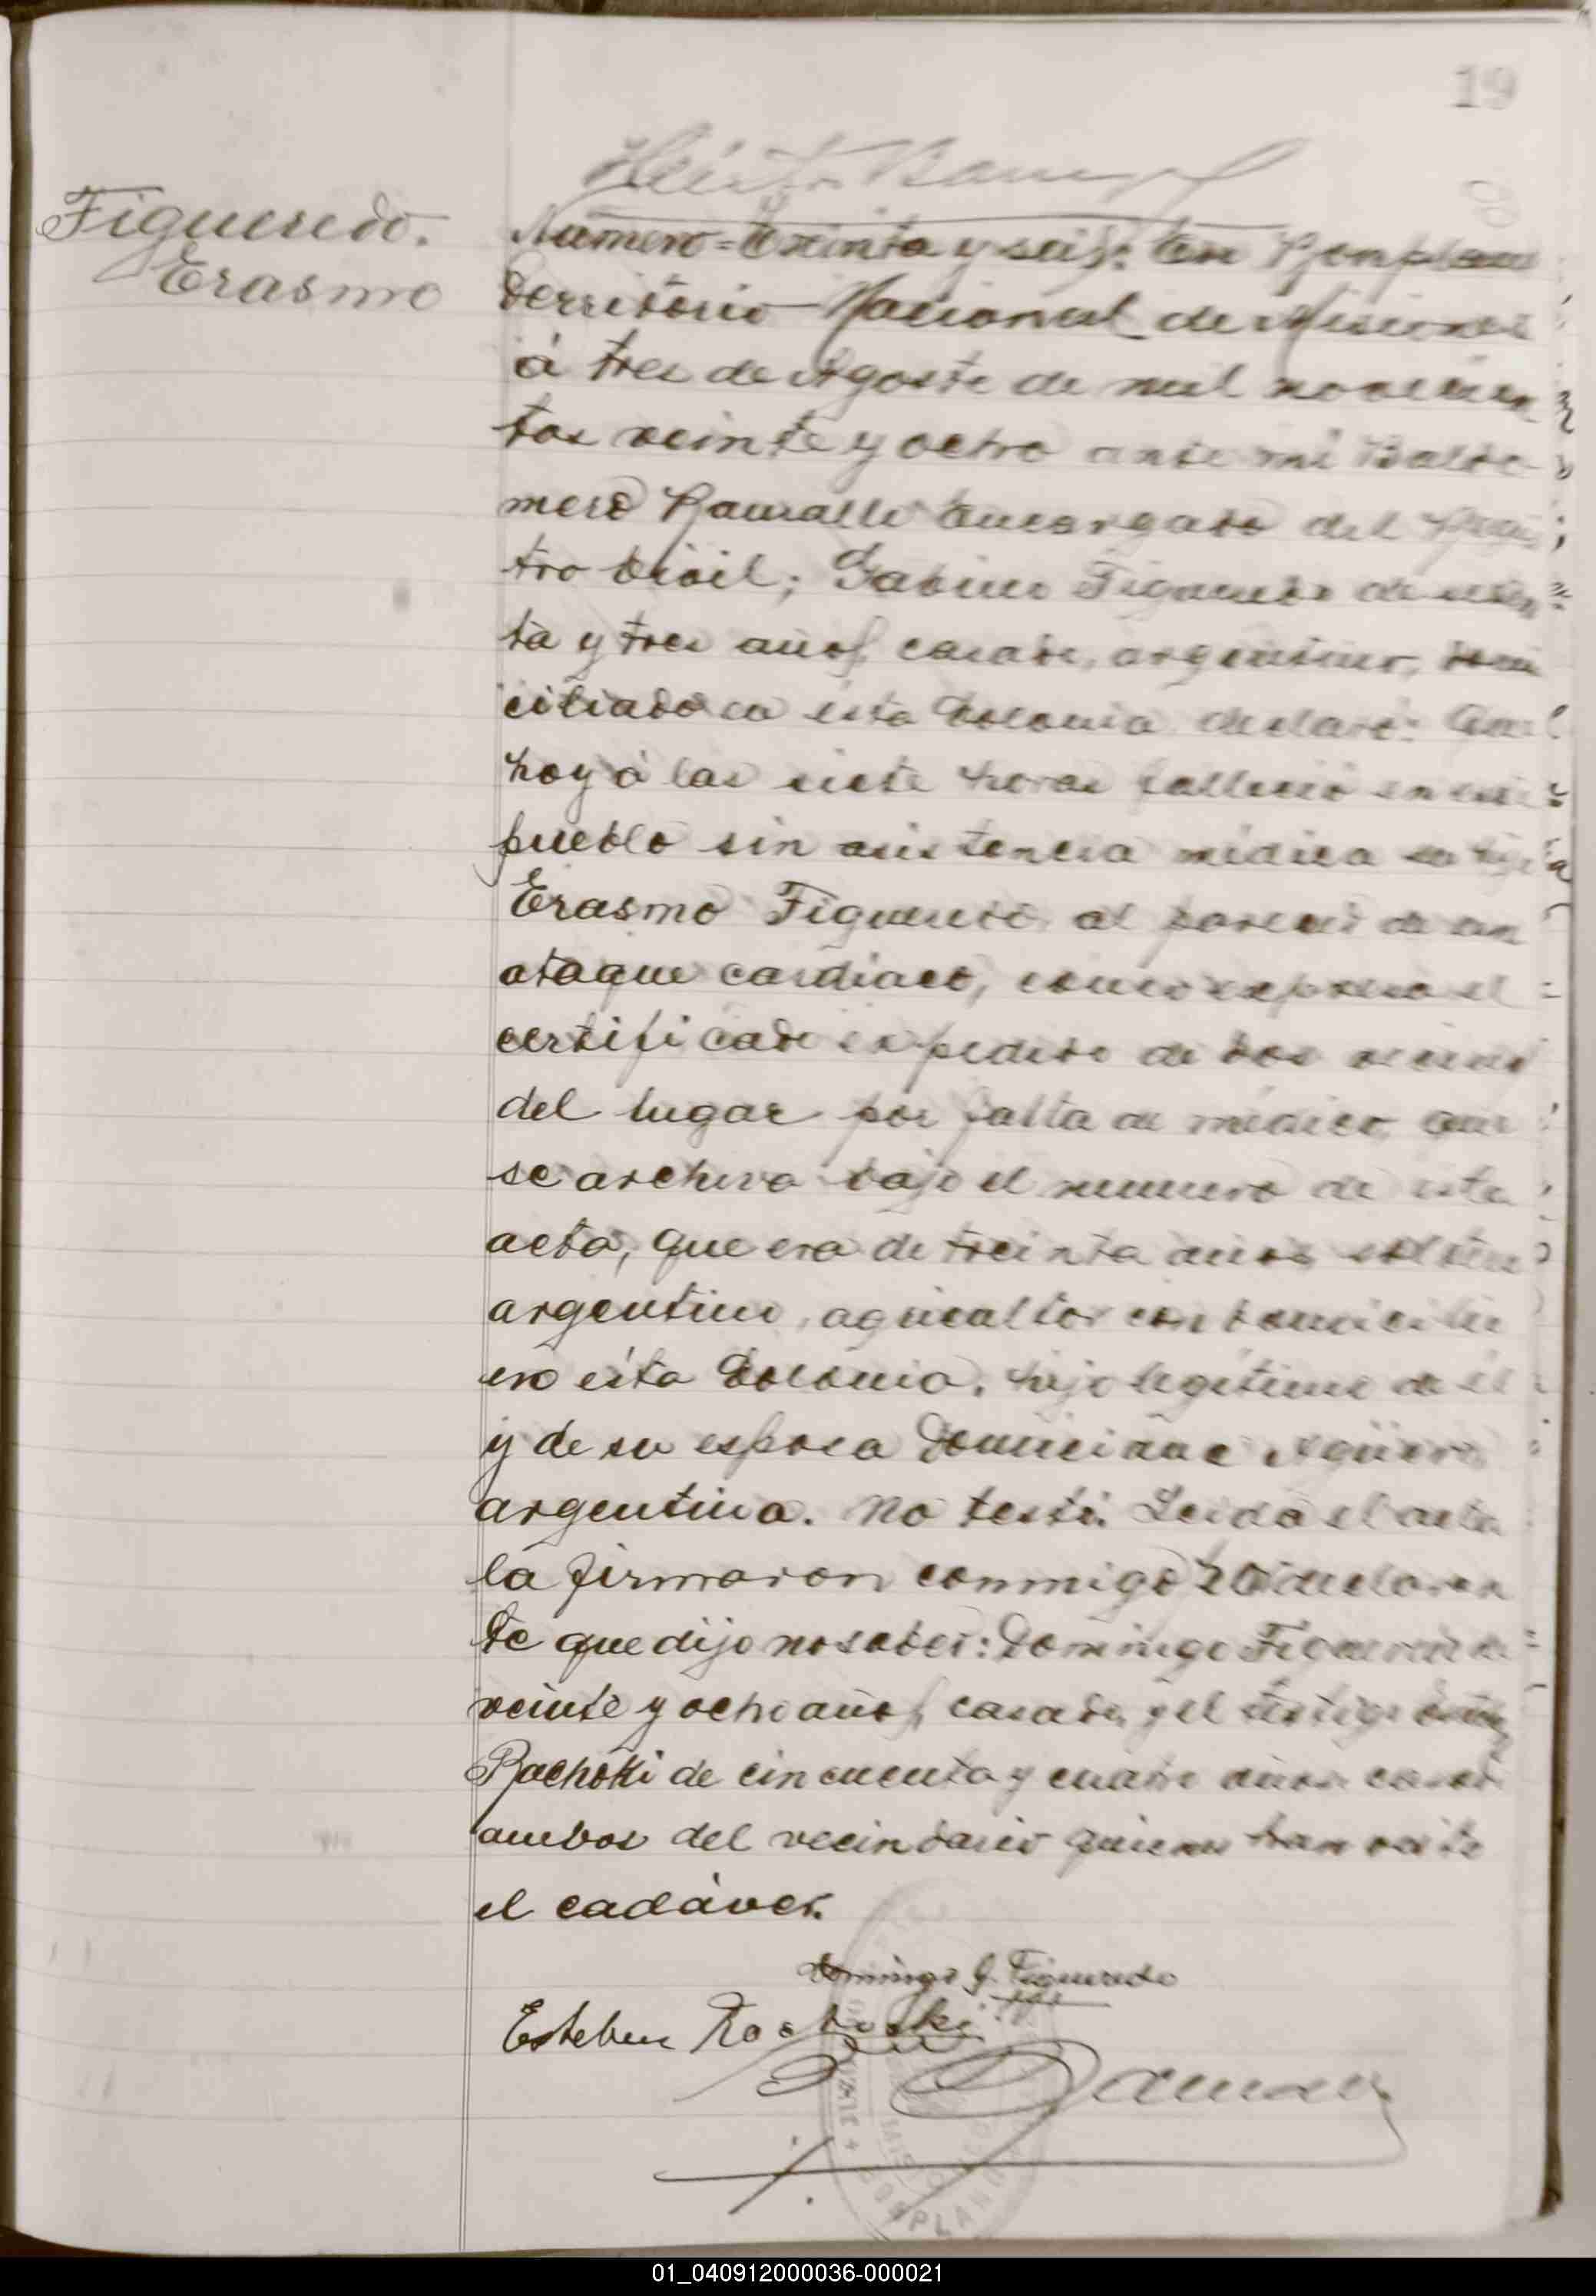 19
Figueredo.
Erasmo
Numero = treinta y seis: En Bonpland
Territorio Nacional de Misiones
á tres de Agosto de mil novecien
tos veinte y ocho ante mi Baldo
mero encargado del Regis
tro Civil; Gabino Figueredo de sesen
ta y tres años, casado, argentino, domi
ciliado en ésta Colonia, declaró: Que
hoy á las siete horas falleció en este
pueblo sin asistencia médica su hijo
Erasmo Figueredo, al parecer de un
ataque cardiaco, como expresa el
certificado expedido de dos vecinos
del lugar por falta de médico, que
se archiva bajo el numero de esta
acta, que era de treinta años, soltero
argentino, agricultor con domicilio
en ésta Colonia, hijo legítimo de él
y de su esposa Domiciana Agüero
argentina. No testó. Leida el acta
la firmaron conmigo declaran
te que dijo no saber: Domingo Figueredo de
veinte y ocho años, casado, y el testigo Esteban
Rachoki de cincuenta y cuatro años casado
ambos del vecindario quienes han visto
el cadáver.
Domingo G. Figueredo
Esteban
BONPLAND
01_040912000036-000021